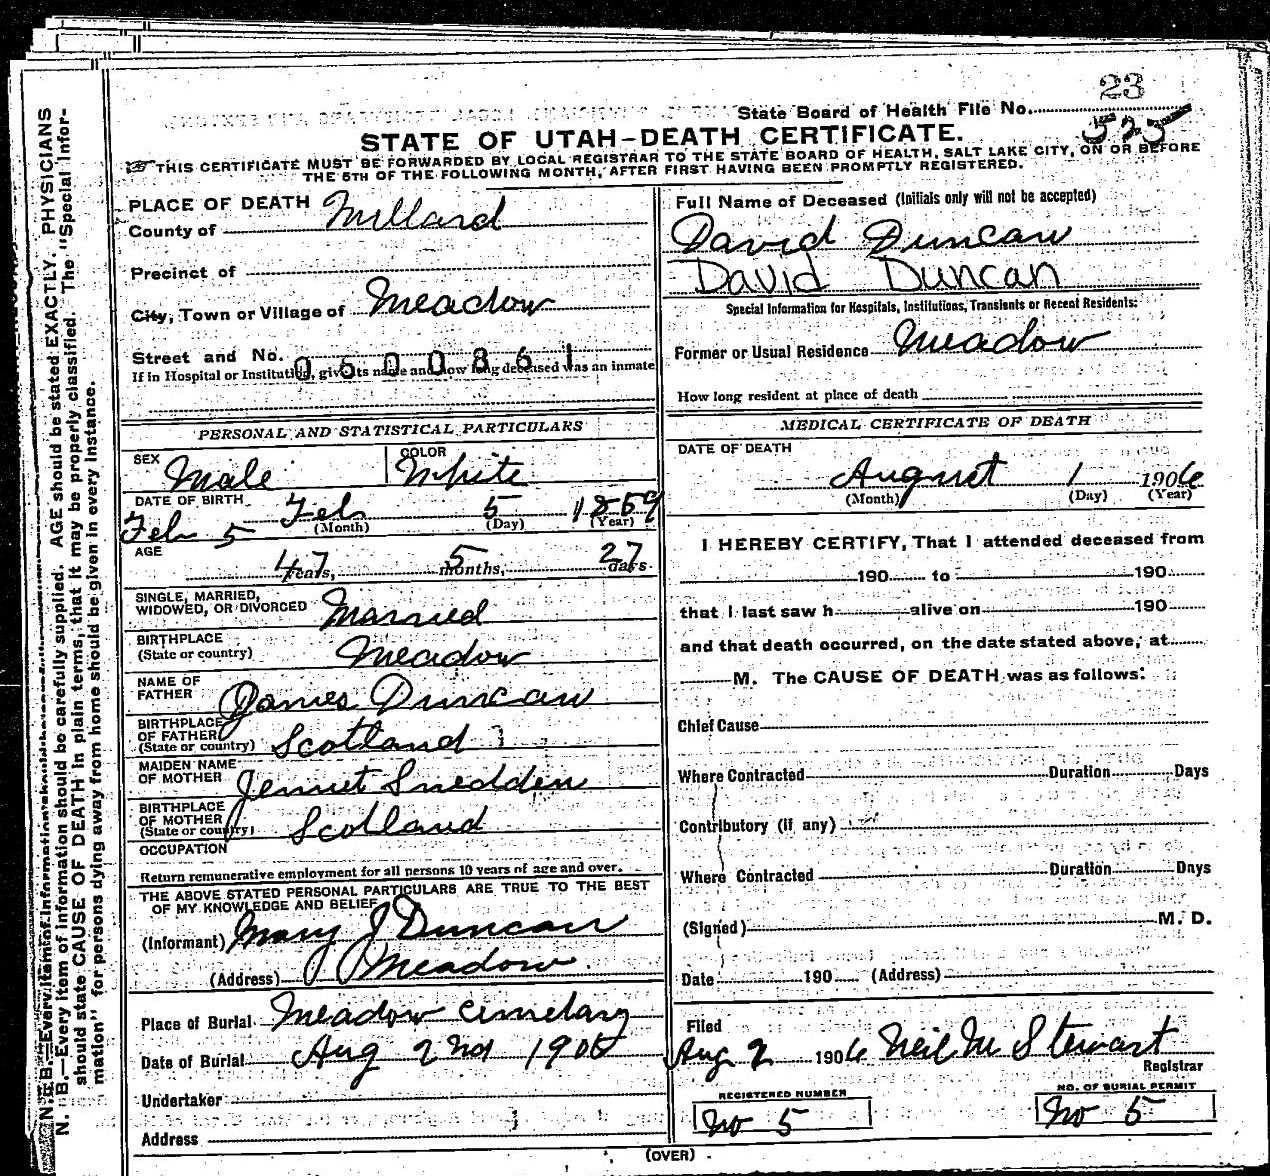 23
State Board of Health File No.
525
STATE OF UTAH-DEATH CERTIFICATE.
THIS CERTIFICATE MUST BE FORWARDED BY LOCAL REGISTRAR TO THE STATE BOARD OF HEALTH, SALT LAKE CITY, ON OR BEFORE
THE 5TH OF THE FOLLOWING MONTH, AFTER FIRST HAVING BEEN PROMPTLY REGISTERED.
PLACE OF DEATH
County of Millard
Precinct of
City, Town or Village of Meadow
Street and No.
0500861
If in Hospital or Institution, give its name and how long deceased was an inmate
PERSONAL AND STATISTICAL PARTICULARS
SEX Male
COLOR White
DATE OF BIRTH Feb 5 1859
(Month) (Day) (Year)
Feb 5
AGE
47 years, 5 months, 27 days.
SINGLE, MARRIED,
WIDOWED, OR DIVORCED Married
BIRTHPLACE
(State or country) Meadow
NAME OF
FATHER James Duncan
BIRTHPLACE
OF FATHER
(State or country) Scotland
MAIDEN NAME
OF MOTHER Jennet Snedden
BIRTHPLACE
OF MOTHER
(State or country) Scotland
OCCUPATION
Return remunerative employment for all persons 10 years of age and over.
THE ABOVE STATED PERSONAL PARTICULARS ARE TRUE TO THE BEST
OF MY KNOWLEDGE AND BELIEF
(Informant) Mary J Duncan
(Address) Meadow
Place of Burial Meadow Cemetary
Date of Burial Aug 2nd 1906
Undertaker
Address
Full Name of Deceased (Initials only will not be accepted)
David Duncan
David Duncan
Special Information for Hospitals, Institutions, Transients or Recent Residents:
Former or Usual Residence Meadow
How long resident at place of death
MEDICAL CERTIFICATE OF DEATH
DATE OF DEATH
August 1 1906
(Month) (Day) (Year)
I HEREBY CERTIFY, That I attended deceased from
190 to 190
that I last saw h alive on 190
and that death occurred, on the date stated above, at
M. The CAUSE OF DEATH was as follows:
Chief Cause
Where Contracted Duration Days
Contributory (if any)
Where Contracted Duration Days
(Signed) M. D.
Date 190 (Address)
Filed
Aug 2 1906 Neil M Stewart
Registrar
REGISTERED NUMBER
No 5
NO. OF BURIAL PERMIT
No 5
(OVER)
N. B.—Every item of information should be carefully supplied. AGE should be stated EXACTLY. PHYSICIANS
should state CAUSE OF DEATH in plain terms, that it may be properly classified. The "Special Infor-
mation" for persons dying away from home should be given in every instance.